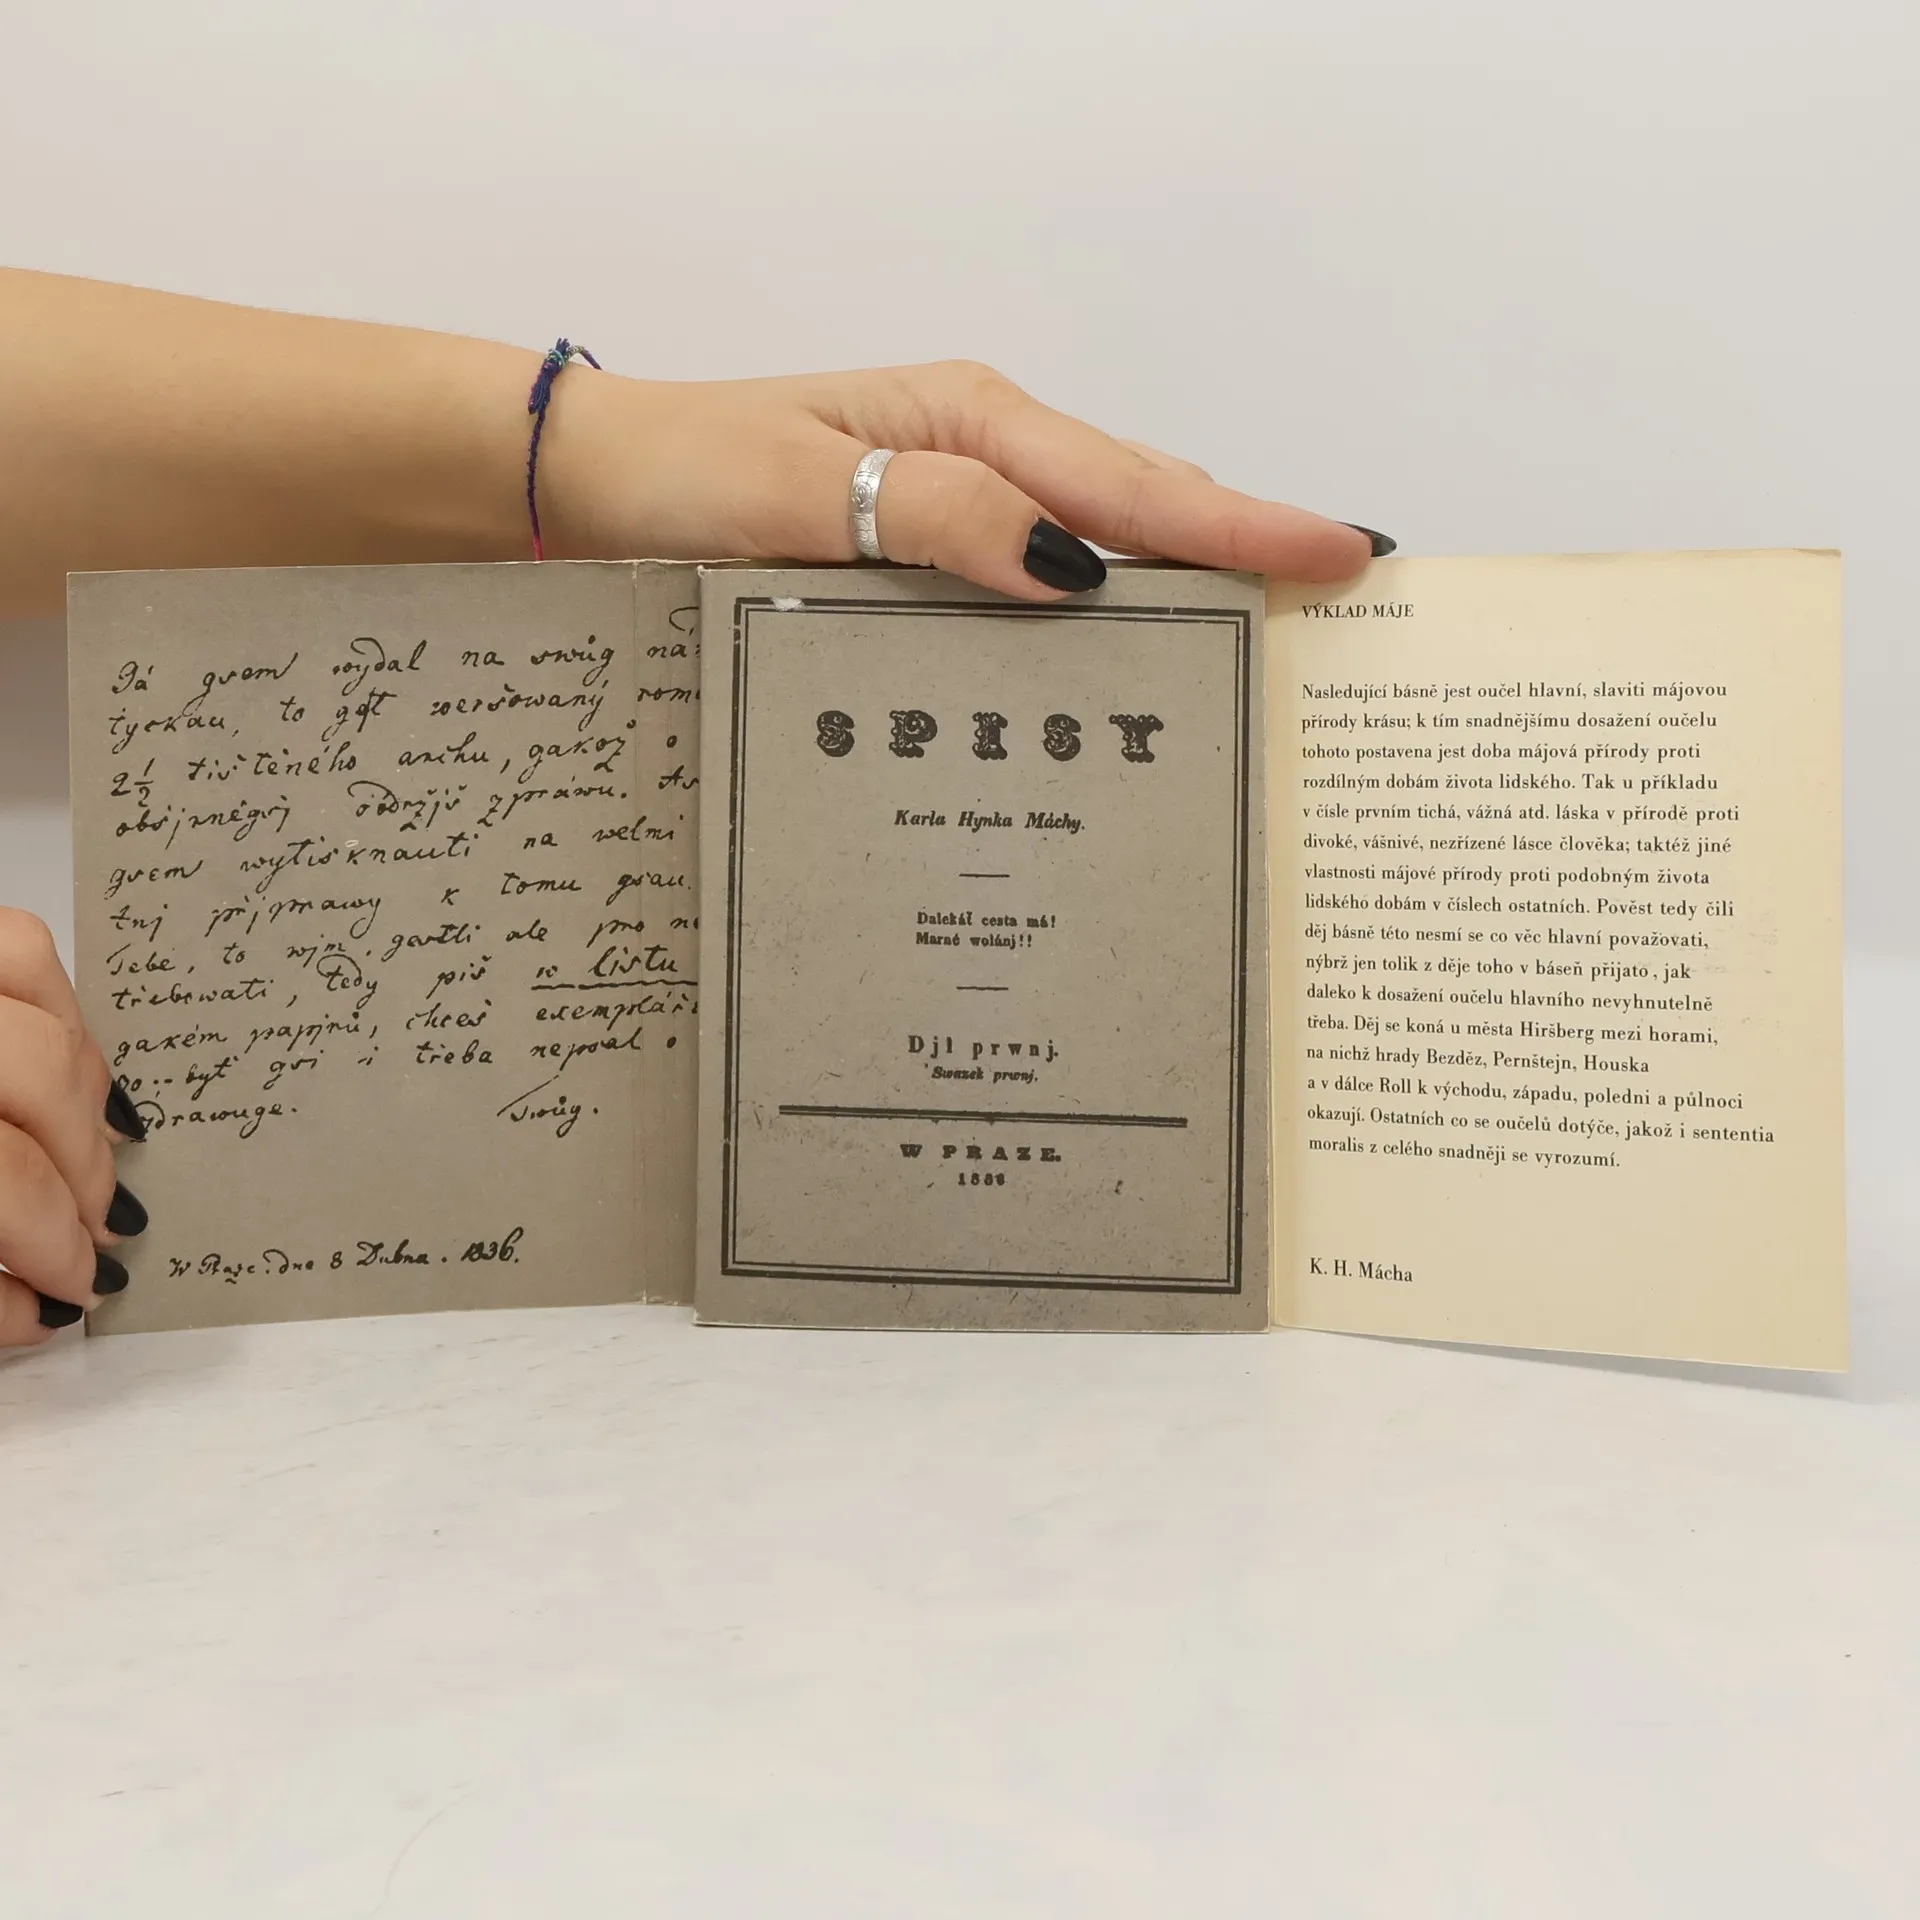 Já gsem wydal na swůg ná
tyckau, to gest weršowaný rom
2½ tištěného archu, gakož o
obšjrněgšj obdržjš zpráwu.
gsem wytisknauti na welmi
přjprawy k tomu gsau.
Tebe, to wjm, gestli ale pro
třebowati, tedy piš w listu
gakém papjrů, chceš exemplář
byť gsi i třeba nepsal o
zdrawuge. Twůg.
W Praze dne 8 Dubna. 1836.
SPISY
Karla Hynka Máchy.
Dalekáť cesta má!
Marné wolánj!!
Djl prwnj.
Swazek prwnj.
W PRAZE.
1836
VÝKLAD MÁJE
Nasledující básně jest oučel hlavní, slaviti májovou
přírody krásu; k tím snadnějšímu dosažení oučelu
tohoto postavena jest doba májová přírody proti
rozdílným dobám života lidského. Tak u příkladu
v čísle prvním tichá, vážná atd. láska v přírodě proti
divoké, vášnivé, nezřízené lásce člověka; taktéž jiné
vlastnosti májové přírody proti podobným života
lidského dobám v číslech ostatních. Pověst tedy čili
děj básně této nesmí se co věc hlavní považovati,
nýbrž jen tolik z děje toho v báseň přijato, jak
daleko k dosažení oučelu hlavního nevyhnutelně
třeba. Děj se koná u města Hiršberg mezi horami,
na nichž hrady Bezděz, Pernštejn, Houska
a v dálce Roll k východu, západu, poledni a půlnoci
okazují. Ostatních co se oučelů dotýče, jakož i sententia
moralis z celého snadněji se vyrozumí.
K. H. Mácha